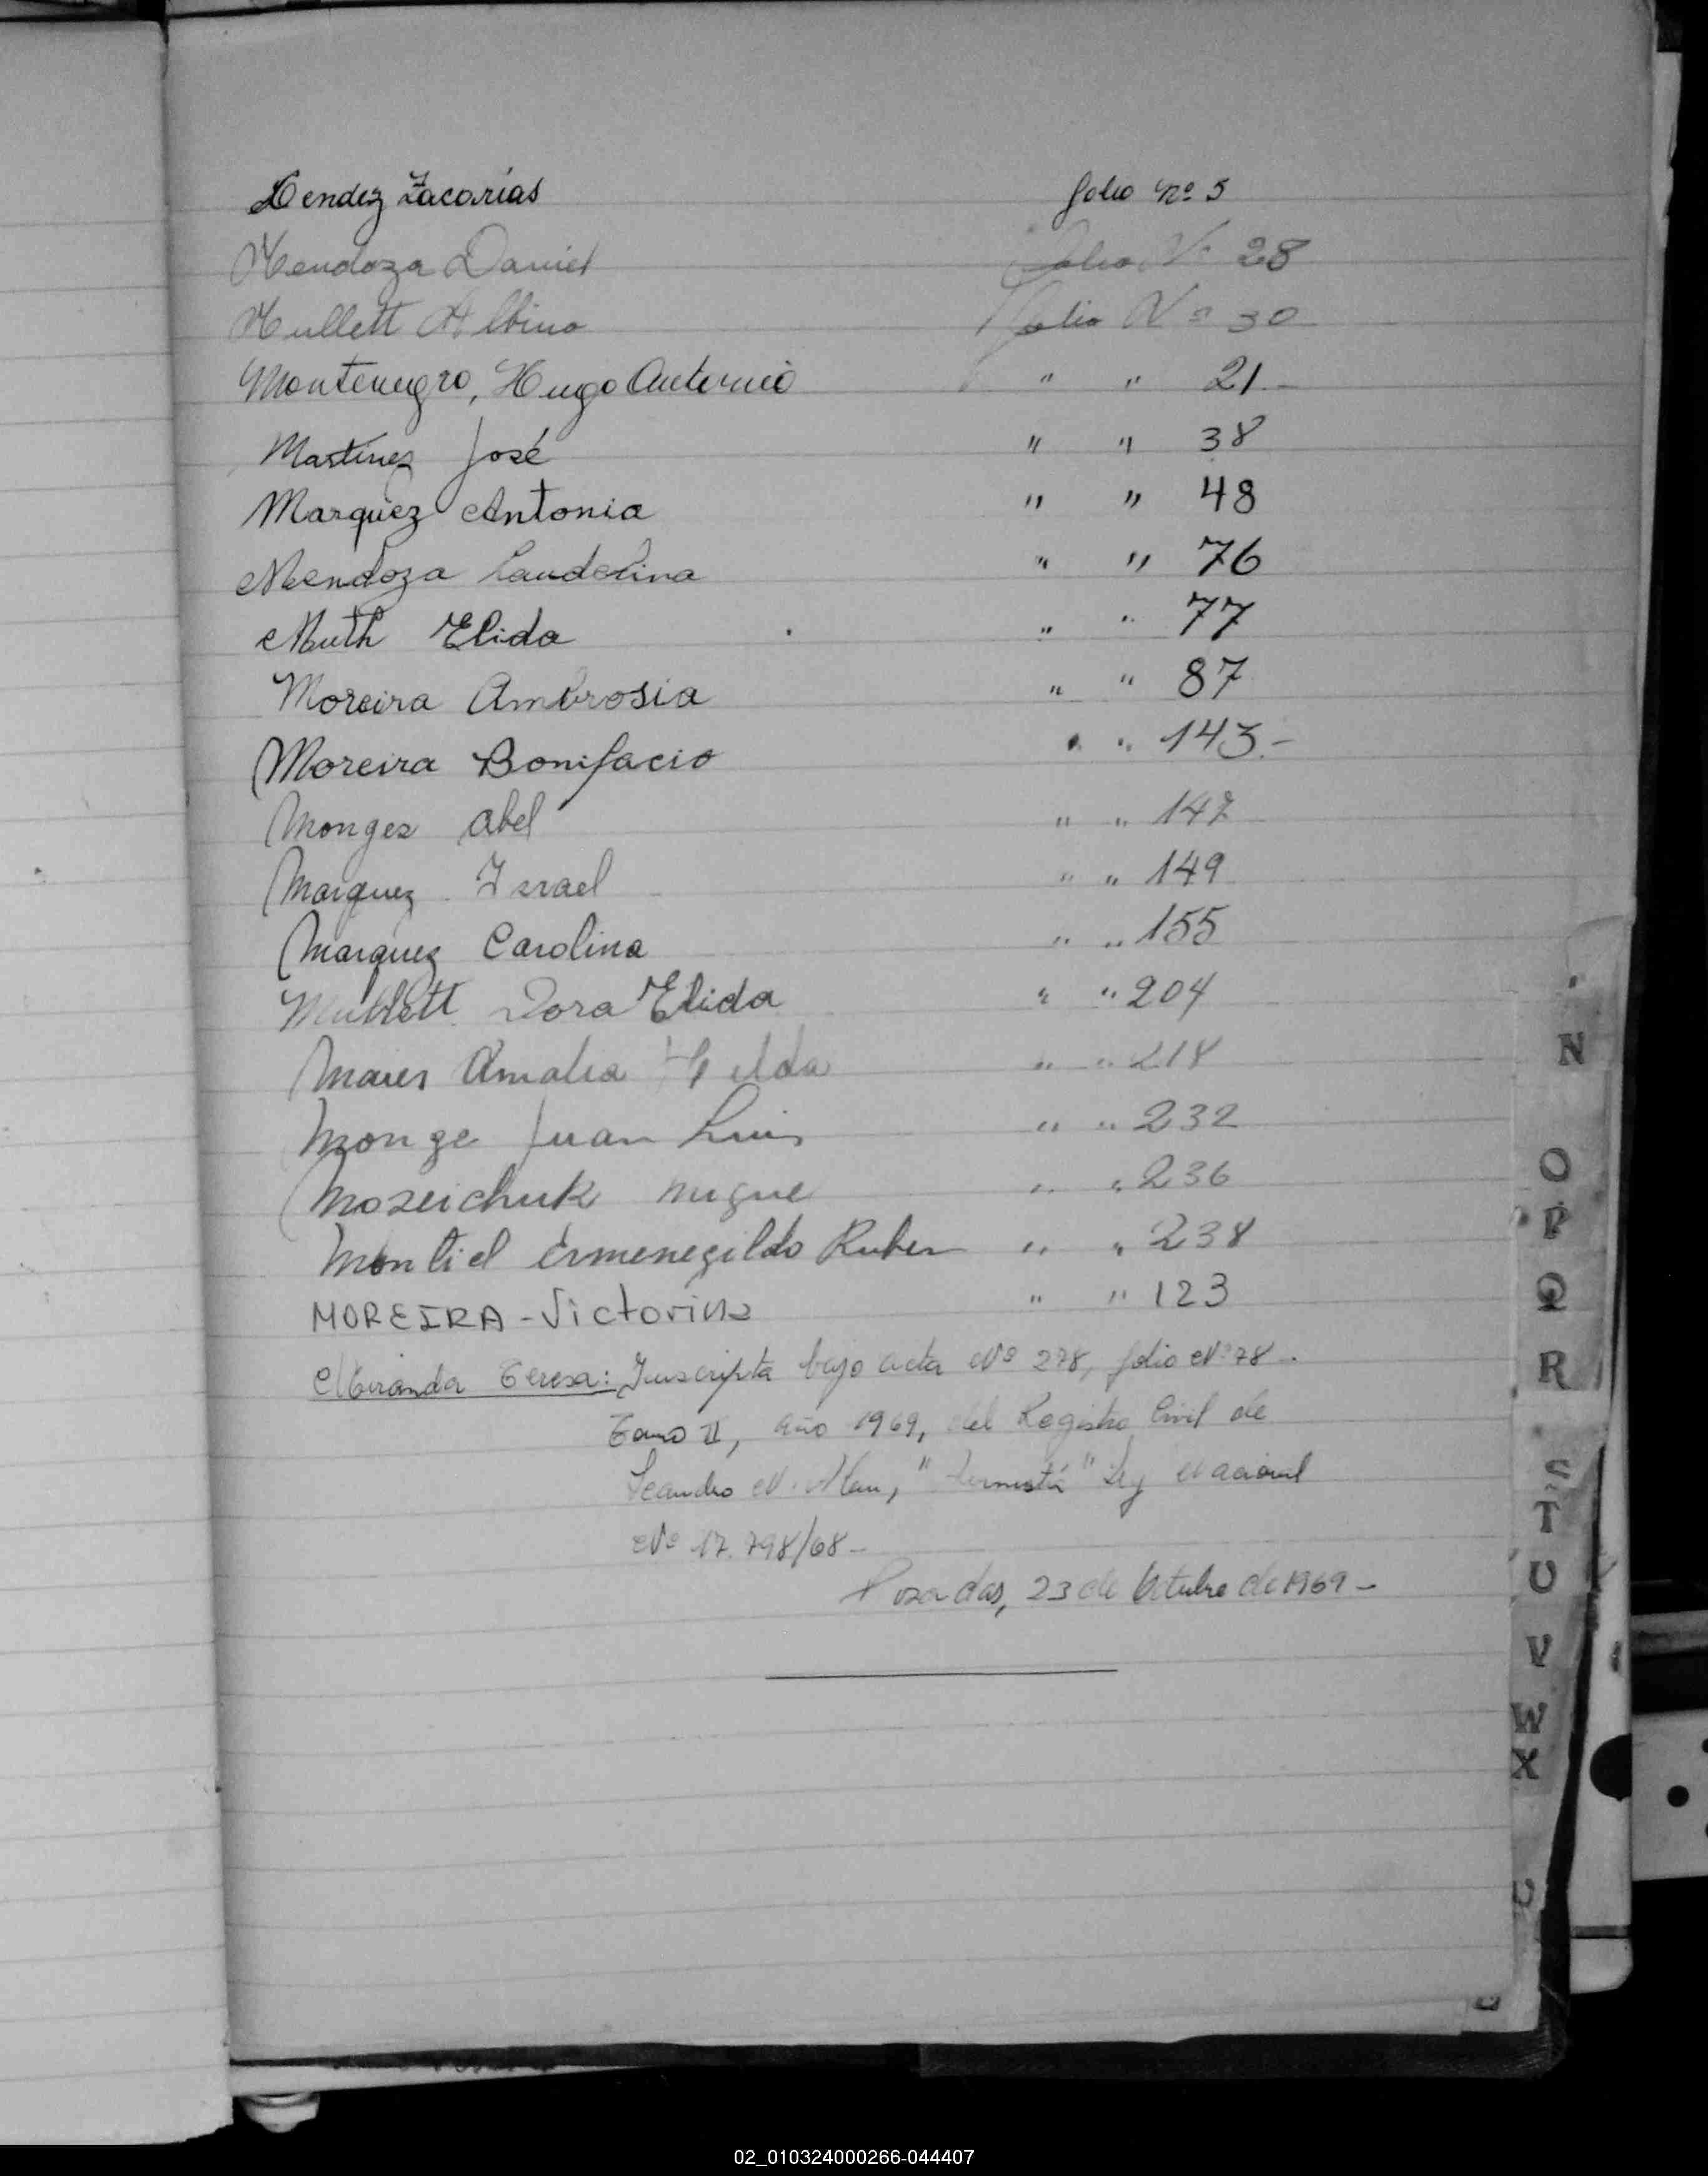 Mendez Zacarías folio Nº 5
Mendoza Daniel Folio Nº 28
Mullett Albino Folio Nº 30
Montenegro, Hugo Antonio " " 21.-
Martinez José " " 38
Marquez Antonia " " 48
Mendoza Laudelina " " 76
Muth Elida " " 77
Moreira Ambrosia " " 87
Moreira Bonifacio " " 143.-
Monges Abel " " 147
Marquez Israel " " 149
Marquez Carolina " " 155
Mullett Dora Elida " " 204
Amalia Hilda " " 218
Monge Juan Luis " " 232
Moseichuk Migue " " 236
Montiel Ermenegildo Ruben " " 238
MOREIRA - Victorino " " 123
Miranda Teresa: Inscripta bajo acta Nº 278, folio Nº 78-
Tomo II, año 1969, del Registro Civil de
Leandro N. Alem, " " Ley Nacional
Nº 17.798/68-
Posadas, 23 de Octubre de 1969-
N
O
P
Q
R
S
T
U
V
W
X
02_010324000266-044407